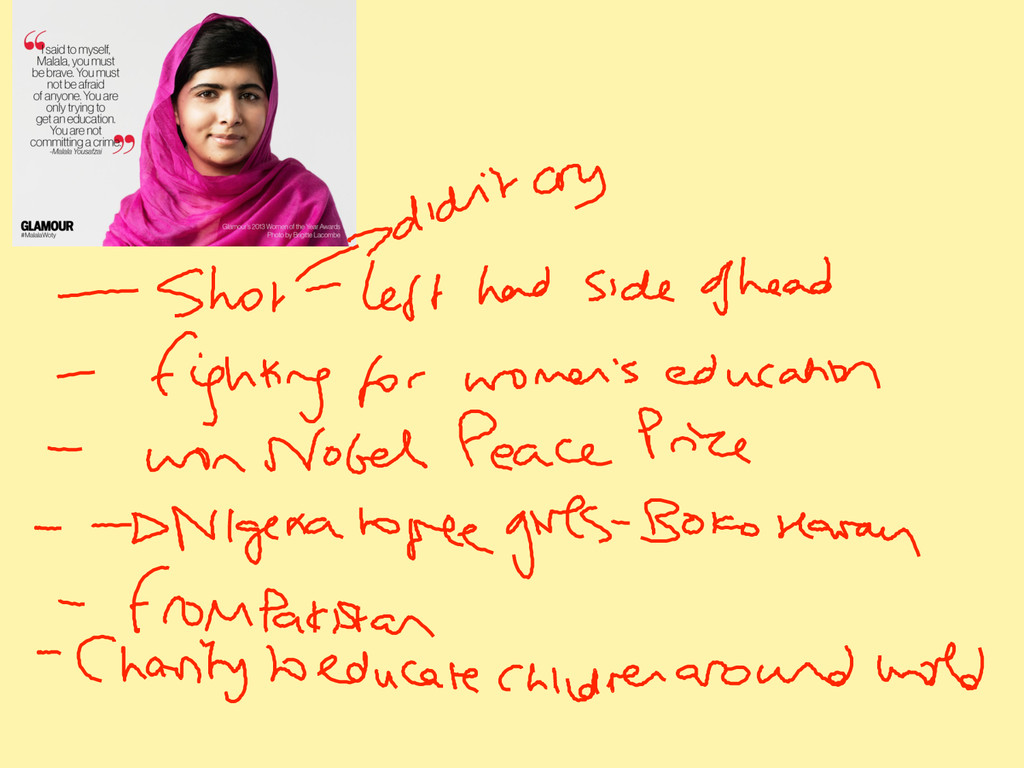 “I said to myself,
Malala, you must
be brave. You must
not be afraid
of anyone. You are
only trying to
get an education.
You are not
committing a crime.”
-Malala Yousafzai
GLAMOUR
#MalalaWoty
Glamour's 2013 Women of the Year Awards
Photo by Brigitte Lacombe
didn't cry
- Shot - left hand side of head
- fighting for women's education
- won Nobel Peace Prize
- → Nigeria to free girls - Boko Haram
- from Pakistan
- Charity to educate children around world